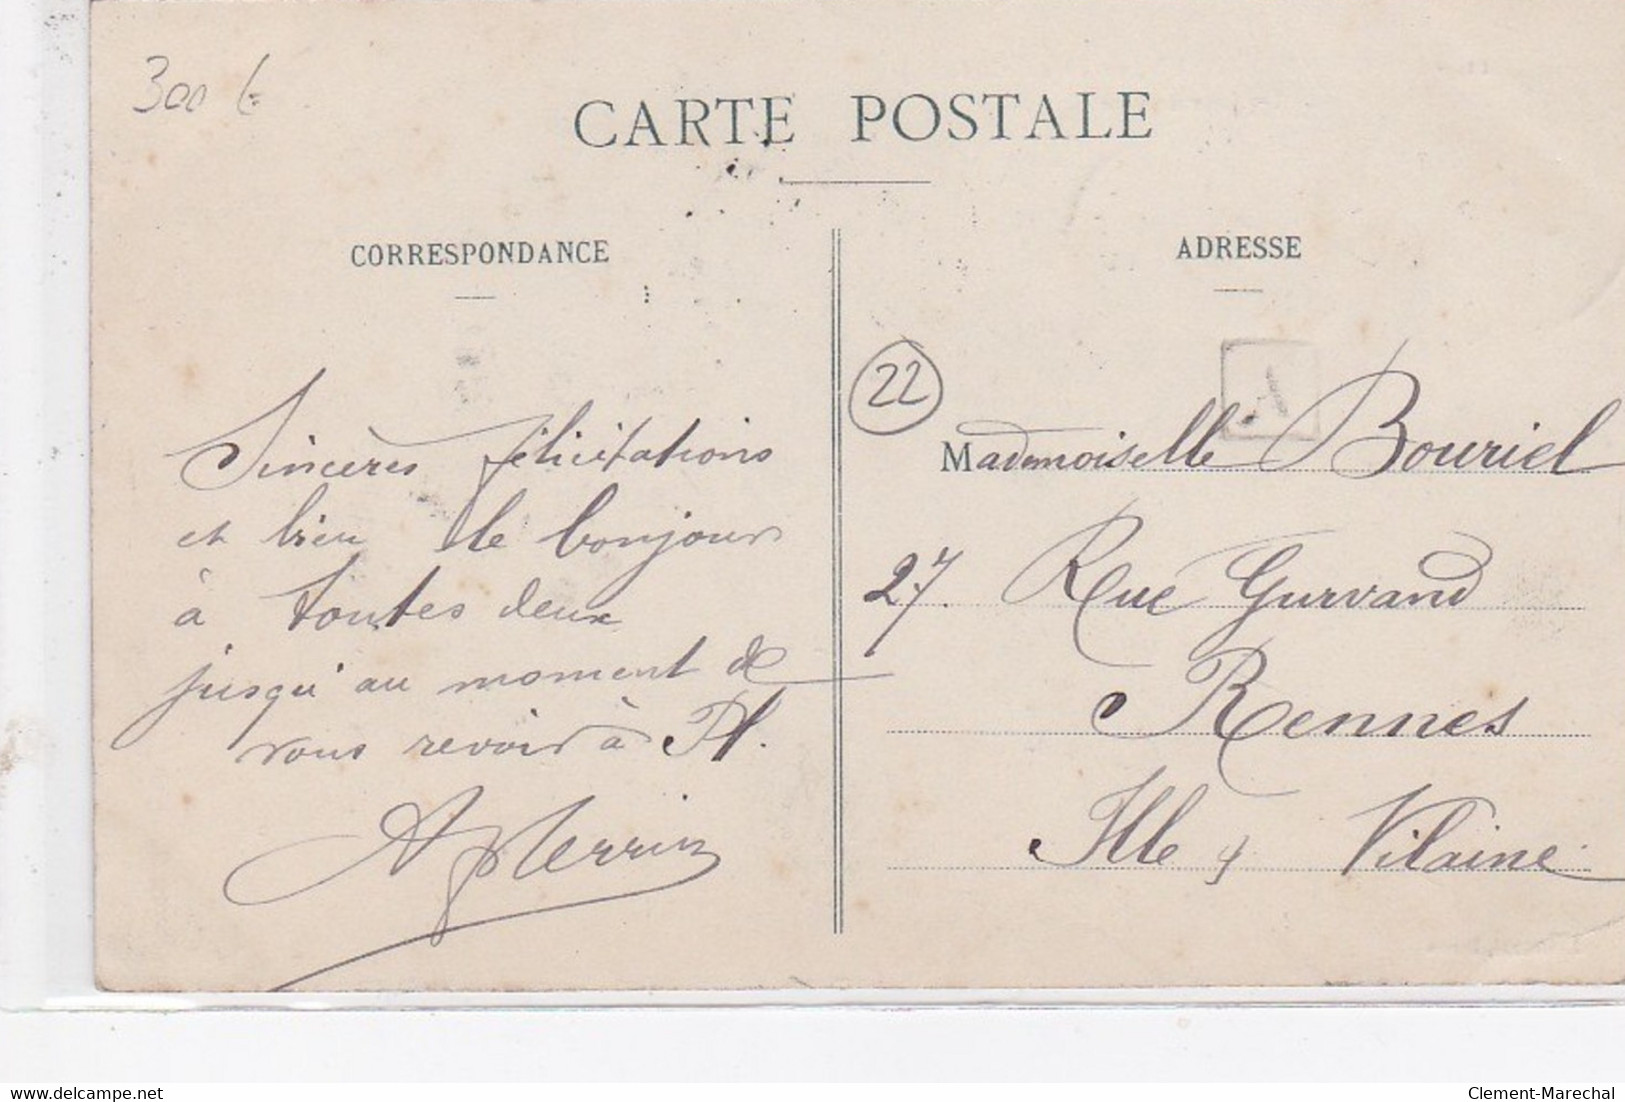 300 €
CARTE POSTALE
CORRESPONDANCE
Sincères félicitations
et bien le bonjour
à toutes deux
jusqu'au moment de
vous revoir à Pl.
A Perrin
ADRESSE
A
22
Mademoiselle Bouriel
27. Rue Gurvand
Rennes
Ille & Vilaine
www.delcampe.net
Clement-Marechal